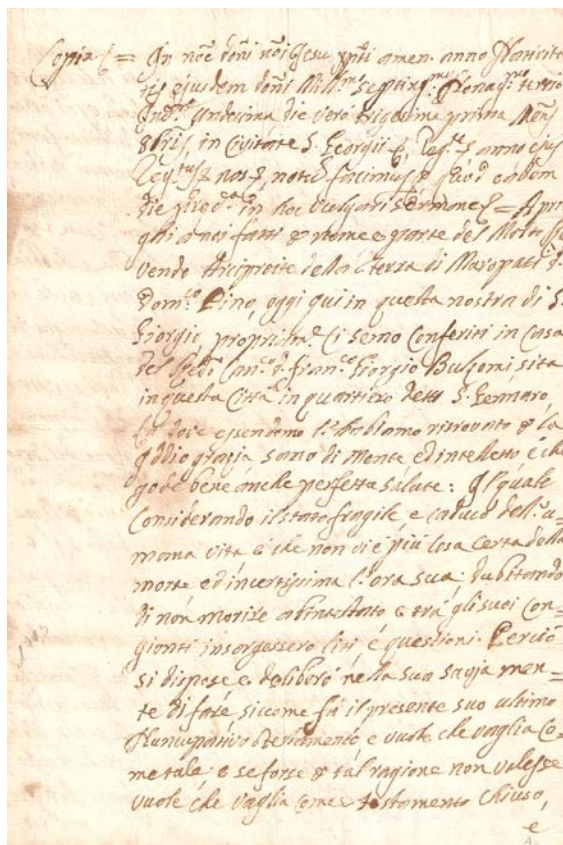 Copia = In nōe dōni nōi Jesu xpti amen. anno Nativita
tis ejusdem dōni Mill.mo septing.mo Nonag.mo tertio
Ind.e Undecima die vero trigesima prima Mens
8bris in Civitate S. Georgii &, Reg.te & anno ejus
notū facimus & quod eadem
die in hoc vulgari sermone = A prie
ghi a noi fatti & nome e parte del Molto Re
vendo Arciprete della terra di Maropati d.
Dom.co Pino, oggi qui in questa nostra di S.
Giorgio, propriam.e Ci semo Conferiti in Casa
del Can.co d. Fran.co Giorgio Bulzomi sita
in questa Città in quartiero detto S. Gennaro,
dove essendomo l'habiamo ritrovato & la
Iddio grazia sano di mente ed intelletto e che
gode bene anche perfetta salute: Il quale
Considerando il stato fragile, e caduco dell'u=
mana vita e che non vi è più Cosa Certa della
morte ed incertissima l'ora sua; dubitando
di non morire abintestato e trà gli suoi Con=
gionti insorgessero liti è questioni. Perciò
si dispose e deliberò nella sua savia men=
te di fare siccome fà il presente suo ultimo
Nuncupativo testamento, e vuole che vaglia Co=
me tale, e se forse & tal ragione non valesse
vuole che vaglia come testamento chiuso,
e